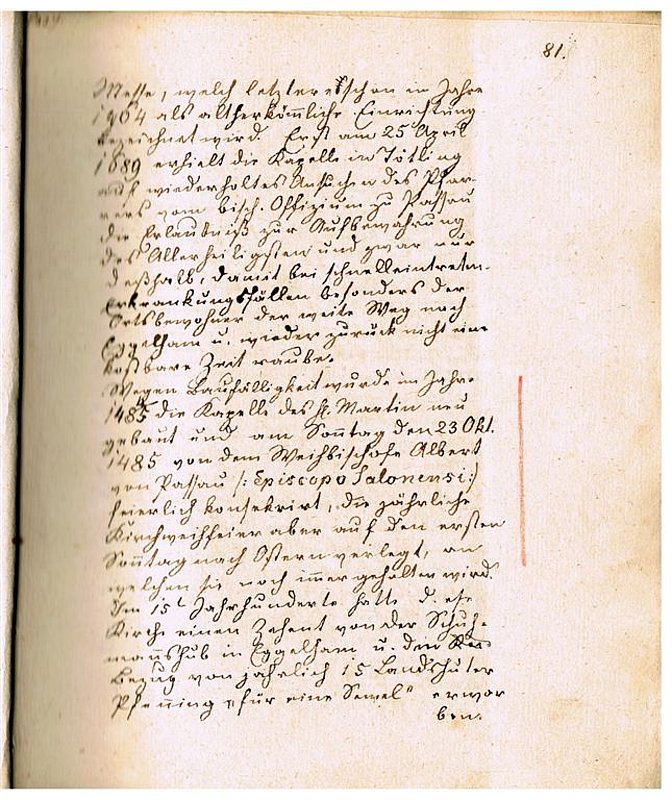 81.
Messe, welch letztere schon im Jahre
1464 als altherkömmliche Einrichtung
bezeichnet wird. Erst am 25 April
1689 erhielt die Kapelle in Tötling
auf wiederholtes Ansuchen des Pfar-
rers vom bisch. Offizium zu Passau
die Erlaubniß zur Aufbewahrung
des Allerheiligsten und zwar nur
deßhalb, damit bei schnell eintreten-
Erkrankungsfällen besonders der
Ortsbewohner der weite Weg nach
Eggelham u. wieder zurück nicht eine
kostbare Zeit raube.
Wegen Baufälligkeit wurde im Jahre
1485 die Kapelle des hl. Martin neu
gebaut und am Sonntag den 23 Okt.
1485 von dem Weihbischofe Albert
von Passau /: Episcopo Salonensi :/
feierlich konsekrirt, die jährliche
Kirchweihfeier aber auf den ersten
Sonntag nach Ostern verlegt, an
welchen sie noch immer gehalten wird.
Im 15t Jahrhunderte hatte d.
Kirche einen Zehent von der Schuh-
mannshub in Eggelham u. den
Bezug von jährlich 15 Landshuter
Pfenning "für eine Semel" erwor
ben.